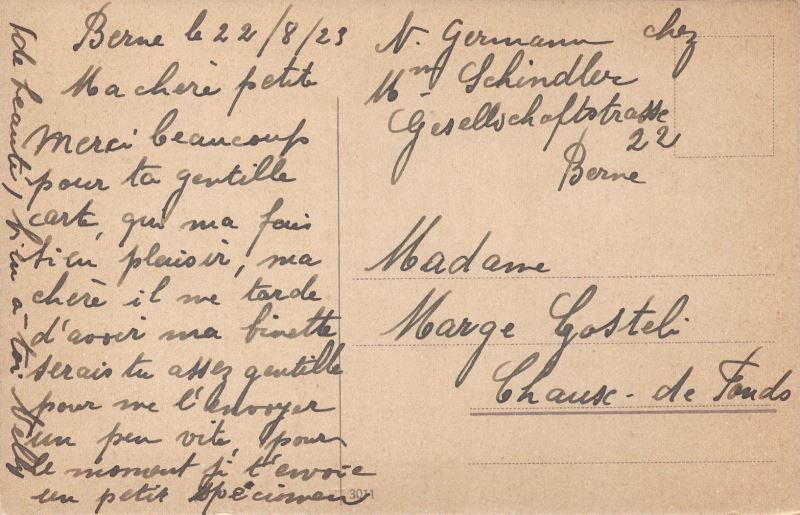 Berne le 22/8/23
Ma chère petite
Merci beaucoup
pour ta gentille
carte, qui ma fais
bien plaisir, ma
chère il me tarde
d'avoir ma binette
serais tu assez gentille
pour me l'envoyer
un peu vite, pour
le moment je t'envoie
un petit spécimen
de beauté, bien à toi. Nelly
N. Germann chez
Mme Schindler
Gesellschaftstrasse
22
Berne
Madame
Marge Gosteli
Chaux-de Fonds
3011